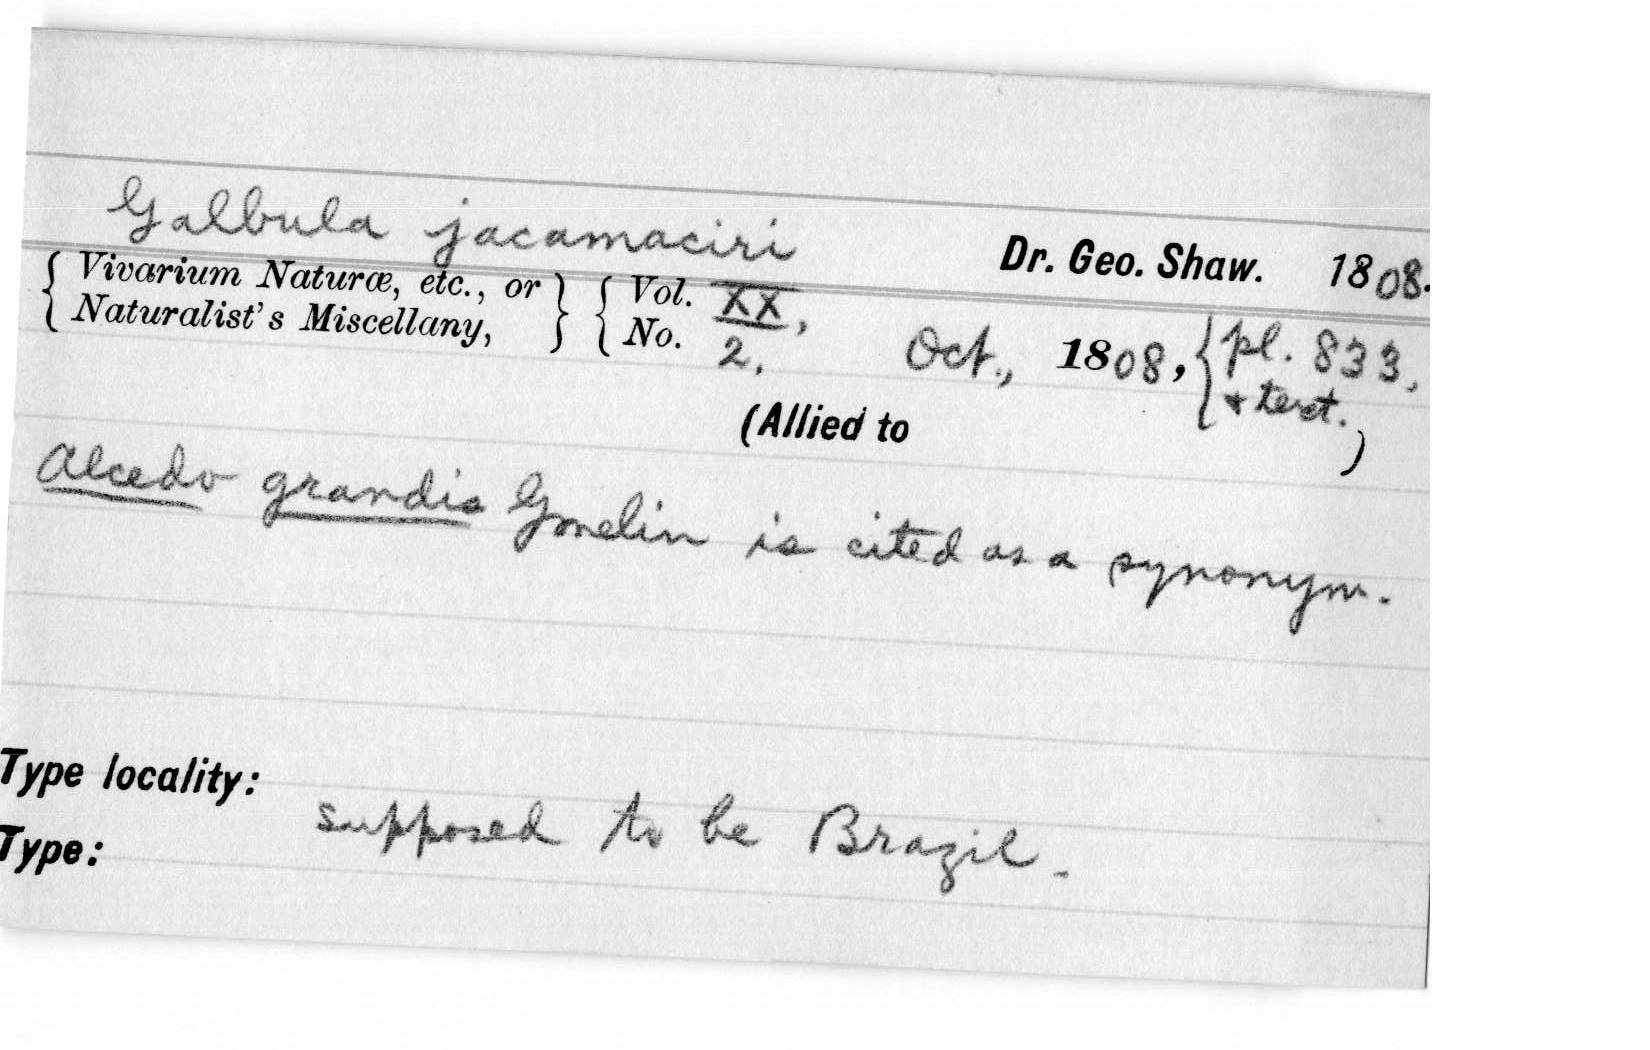 Galbula jacamaciri Dr. Geo. Shaw. 1808.
{ Vivarium Naturæ, etc., or } { Vol. XX,
{ Naturalist's Miscellany, } { No. 2, Oct., 1808, { pl. 833,
& text.
(Allied to )
Alcedo grandis Gmelin is cited as a synonym.
Type locality:
supposed to be Brazil.
Type: